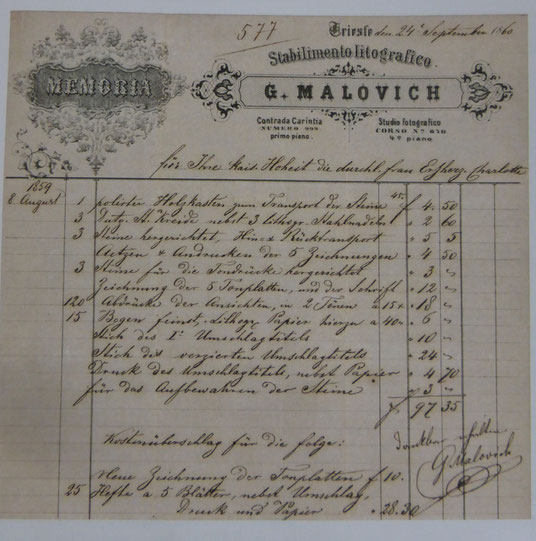 577
Trieste den 24t September 1860
MEMORIA
Stabilimento litografico
G. MALOVICH
Contrada Carintia
NUMERO 999
primo piano.
Studio fotografico
CORSO No 650
4o piano
für Ihre kais. Hoheit die durchl. frau Erzherz. Charlotte
1859
8. August 1 polirter Holzkasten zum Transport der Steine f. 4. 50
3 Dutz. lit. Kreide nebst 3 lithogr. Stahlnadeln " 2 60
3 Steine hergerichtet, Hin- & Rücktransport " 5 5
Aetzen & Andrucken der 5 Zeichnungen " 4 50
3 Steine für die Tondrucke hergerichtet " 3 "
Zeichnung der 5 Tonplatten, und der Schrift " 12 "
120 Abdrücke der Ansichten, in 2 Tönen a 15x " 18 "
15 Bogen feinst. Lithogr. Papier hiezu a 40x " 6 "
Stich des 1t Umschlagtitels " 10 "
Stich des verzierten Umschlagtitels " 24 "
Druck des Umschlagtitels, nebst Papier " 4 70
für das Aufbewahren der Steine " 3 "
f. 97 35
Kostenüberschlag für die folge:
Dankbar erhalten
G Malovich
Neue Zeichnung der Tonplatten f. 10.
25 Hefte a 5 Blätter, nebst Umschlag,
Druck und Papier " 28.30